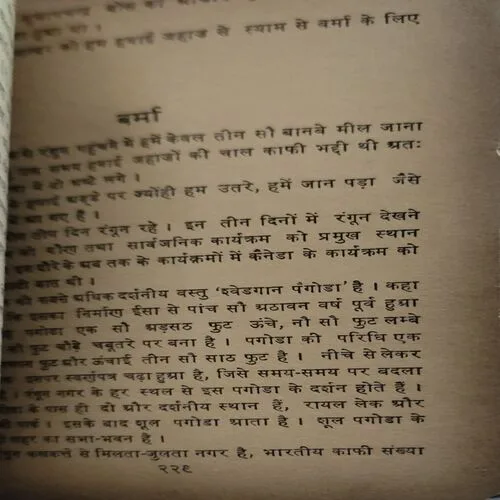 को हम हवाई जहाज से स्याम से बर्मा के लिए
बर्मा
पहुंचने में हमें केवल तीन सौ बानवे मील जाना
समय हवाई जहाजों की चाल काफी भद्दी थी अतः
में दो घण्टे लगे ।
हवाई अड्डे पर ज्योंही हम उतरे, हमें जान पड़ा जैसे
आ गए है ।
तीन दिन रंगून रहे । इन तीन दिनों में रंगून देखने
तथा सार्वजनिक कार्यक्रम को प्रमुख स्थान
इस दौरे के अब तक के कार्यक्रमों में कैनेडा के कार्यक्रम को
बात थी ।
की सबसे अधिक दर्शनीय वस्तु 'श्वेडगान पंगोडा' है । कहा
इसका निर्माण ईसा से पांच सौ अठावन वर्ष पूर्व हुआ
पगोडा एक सौ अड़सठ फुट ऊंचे, नौ सौ फुट लम्बे
फुट चौड़े चबूतरे पर बना है । पगोडा की परिधि एक
फुट और ऊंचाई तीन सौ साठ फुट है । नीचे से लेकर
स्वर्णपत्र चढ़ा हुआ है, जिसे समय-समय पर बदला
नगर के हर स्थल से इस पगोडा के दर्शन होते हैं ।
के पास ही दो और दर्शनीय स्थान हैं, रायल लेक और
इसके बाद शूल पगोडा आता है । शूल पगोडा के
का सभा-भवन है ।
कलकत्ते से मिलता-जुलता नगर है, भारतीय काफी संख्या
२२९